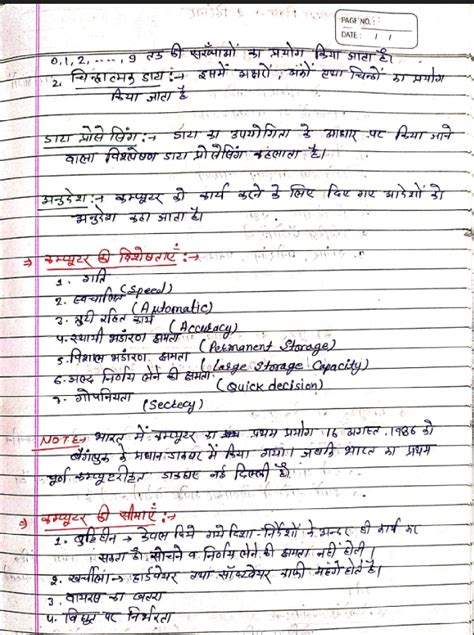 PAGE NO.:
DATE: / /
0, 1, 2, ....., 9 तक की संख्याओं का प्रयोग किया जाता है।
2. चिन्हात्मक डाटा :→ इसमें अक्षरों, अंकों तथा चिन्हों का प्रयोग
किया जाता है
डाटा प्रोसेसिंग :→ डाटा का उपयोगिता के आधार पर किया जाने
वाला विश्लेषण डाटा प्रोसेसिंग कहलाता है।
अनुदेश :→ कम्प्यूटर को कार्य करने के लिए दिए गए आदेशों को
अनुदेश कहा जाता है।
⇒ कम्प्यूटर की विशेषताएँ :→
1. गति (Speed)
2. स्वचालित (Automatic)
3. त्रुटी रहित कार्य (Accuracy)
4. स्थायी भंडारण क्षमता (Permanent Storage)
5. विशाल भंडारण क्षमता (Large Storage Capacity)
6. जल्द निर्णय लेने की क्षमता (Quick decision)
7. गोपनियता (Secrecy)
NOTE→ भारत में कम्प्यूटर का प्रथम प्रयोग 16 अगस्त, 1986 को
बेंगलुरु के प्रधान डाकघर में किया गया। जबकि भारत का प्रथम
पूर्ण कम्प्यूटरीकृत डाकघर नई दिल्ली है।
⇒ कम्प्यूटर की सीमाएँ :→
1. बुद्धिहीन → केवल दिये गये दिशा-निर्देशों के अन्दर ही कार्य कर
सकता है। सोचने व निर्णय लेने की क्षमता नहीं होती।
2. खर्चीला → हार्डवेयर तथा सॉफ्टवेयर काफी महंगे होते है।
3. वायरस का खतरा
4. विद्युत पर निर्भरता